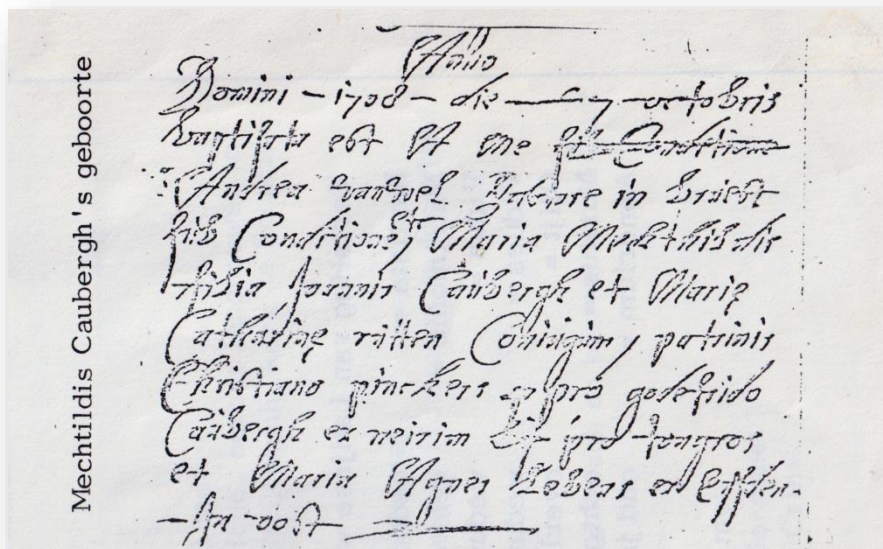 Mechtildis Caubergh's geboorte
Anno
Domini - 1708 - die 7 octobris
Baptista est A me sub Conditione
Andrea vanwel pastore in
sub Conditione Maria Mechthildis
filia Joannis Caubergh et Marie
Catharine ritten Coniugum, patrinis
Christiano pinckers pro godefrido
Caubergh ex neirim pro tongros
et Maria Agnes Lebens ex Eijsden